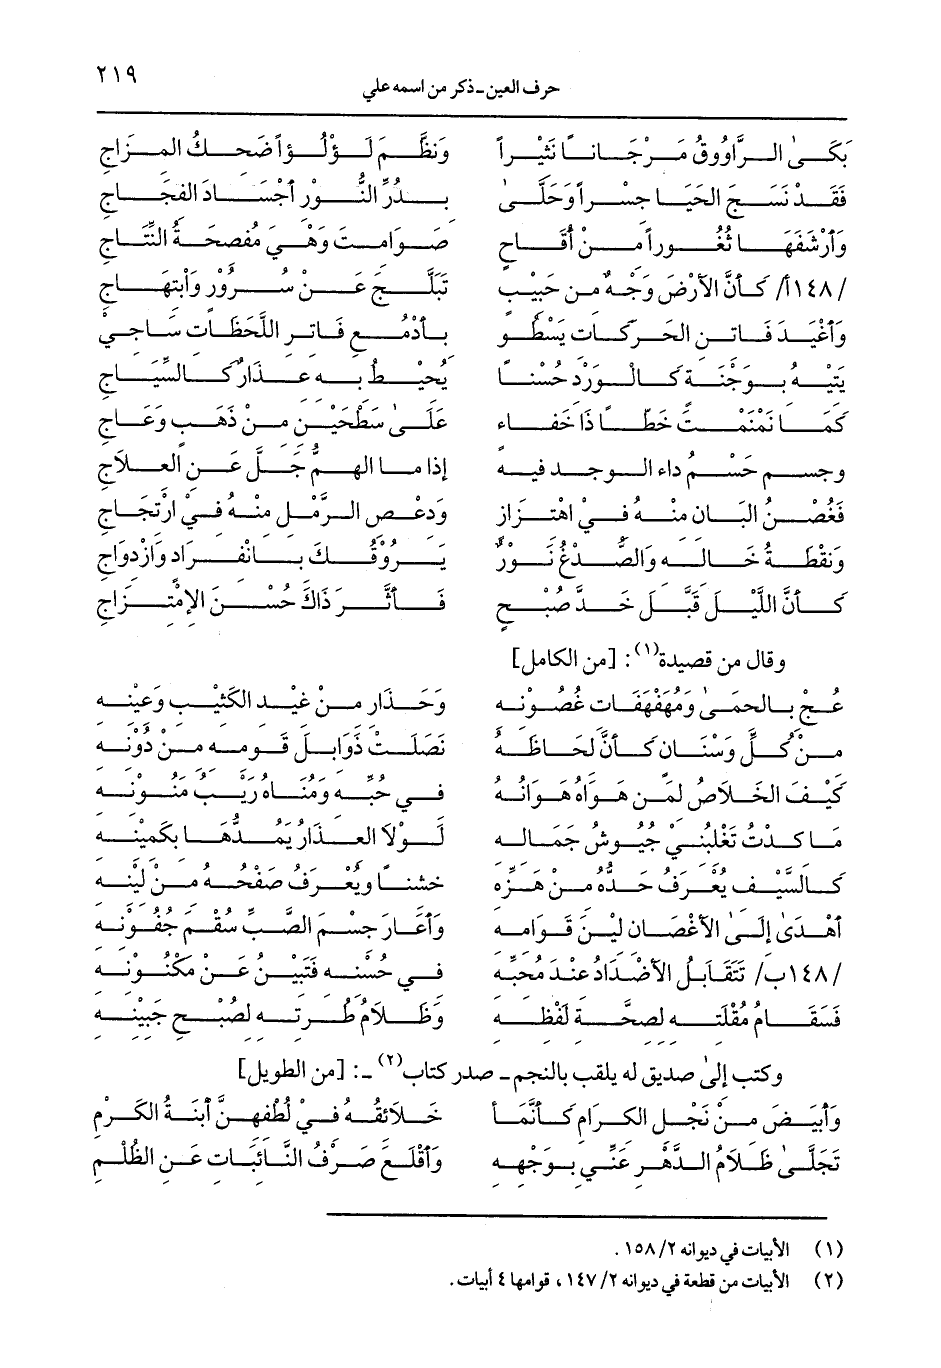 حرف العين ـ ذكر من اسمه علي ٢١٩
بَكَىٰ الرَّاوُوقُ مَرْجَاناً نَثِيْراً وَنَظَّمَ لَؤْلُؤاً ضَحكُ المِزَاجِ
فَقَد نَسَجَ الحَيَا جِسْراً وَحَلَّىٰ بِدُرِّ النُّوْرِ أَجْسَادَ الفِجَاجِ
وَأَرْشَفَهَا ثُغُوراً مِنْ أَقَاحٍ صَوَامِتَ وَهْيَ مُفصِحَةُ النِّتَاجِ
/١٤٨أ/ كَأَنَّ الأَرْضَ وَجْهٌ مِن حَبِيْبٍ تَبَلَّجَ عَنْ سُرُوْرٍ وَابْتِهَاجِ
وَأَغْيَدَ فَاتِنِ الحَرَكَاتِ يَسْطُو بِأَدْمُعِ فَاتِرِ اللَّحَظَاتِ سَاجِيْ
يَتِيْهُ بِوَجْنَةٍ كَالْوَرْدِ حُسْناً يُحِيْطُ بِهِ عِذَارٌ كَالسِّيَاجِ
كَمَا نَمْنَمْتَ خَطّاً ذَا خَفَاءٍ عَلَىٰ سَطْحَيْنِ مِنْ ذَهَبٍ وَعَاجِ
وجسمٍ حَسْمُ داءِ الوجدِ فيهِ إذا ما الهمُّ جَلَّ عَنِ العِلاَجِ
فَغُصْنُ البَانِ مِنْهُ فِي اهْتِزَازٍ وَدعْصِ الرَّمْلِ مِنْهُ فِيْ ارْتِجَاجِ
وَنقْطَةُ خَالِهِ وَالصُّدْغُ نُورٌ يَرُوْقُكَ بِانْفِرَادٍ وَازْدِوَاجِ
كَأَنَّ اللَّيْلَ قَبَّلَ خَدَّ صُبْحٍ فَأَثَّرَ ذَاكَ حُسْنَ الإمْتِزَاجِ
وقال من قصيدة(١): [من الكامل]
عُجْ بِالحِمَىٰ وَمُهَفْهَفَاتِ غُصُوْنِهِ وَحَذَارِ مِنْ غِيْدِ الكَثِيْبِ وَعِيْنِهِ
مِنْ كُلِّ وَسْنَانٍ كَأَنَّ لِحَاظَهُ نَصَلَتْ ذَوَابِلَ قَوْمِهِ مِنْ دُوْنِهِ
كَيْفَ الخَلاَصُ لِمَنْ هَوَاهُ هَوَانُهُ فِي حُبِّهِ وَمُنَاهُ رَيْبُ مَنُوْنِهِ
مَا كِدْتُ تَغْلِبُنِيْ جُيُوْشُ جَمَالِهِ لَوْلاَ العِذَارُ يَمُدُّهَا بِكَمِيْنِهِ
كَالسَّيْفِ يُعْرَفُ حَدُّهُ مِنْ هَزِّهِ خَشْناً وَيُعْرَفُ صَفْحُهُ مِنْ لِيْنِهِ
أَهْدَىٰ إِلَىٰ الأَغْصَانِ لِيْنَ قَوَامِهِ وَأَعَارَ جِسْمَ الصَّبِّ سُقْمَ جُفُوْنِهِ
/١٤٨ب/ تَتَقَابَلُ الأَضْدَادُ عِنْدَ مُحِبِّهِ فِي حُسْنِهِ فَتُبِيْنُ عَنْ مَكْنُوْنِهِ
فَسَقَامُ مُقْلَتِهِ لِصِحَّةِ لَفْظِهِ وَظَلاَمُ طُرَّتِهِ لِصُبْحِ جَبِيْنِهِ
وكتب إلىٰ صديق له يلقب بالنجم ـ صدر كتاب(٢) ـ: [من الطويل]
وَأَبيَضَ مِنْ نَجْلِ الكِرَامِ كَأَنَّمَا خَلاَئِقُهُ فِيْ لُطْفِهِنَّ أبنَةُ الكَرْمِ
تَجَلَّىٰ ظَلاَمُ الدَّهْرِ عَنِّي بِوَجْهِهِ وَأَقْلَعَ صَرْفُ النَّائِبَاتِ عَنِ الظُّلْمِ
(١) الأبيات في ديوانه ١٥٨/٢.
(٢) الأبيات من قطعة في ديوانه ١٤٧/٢، قوامها ٤ أبيات.